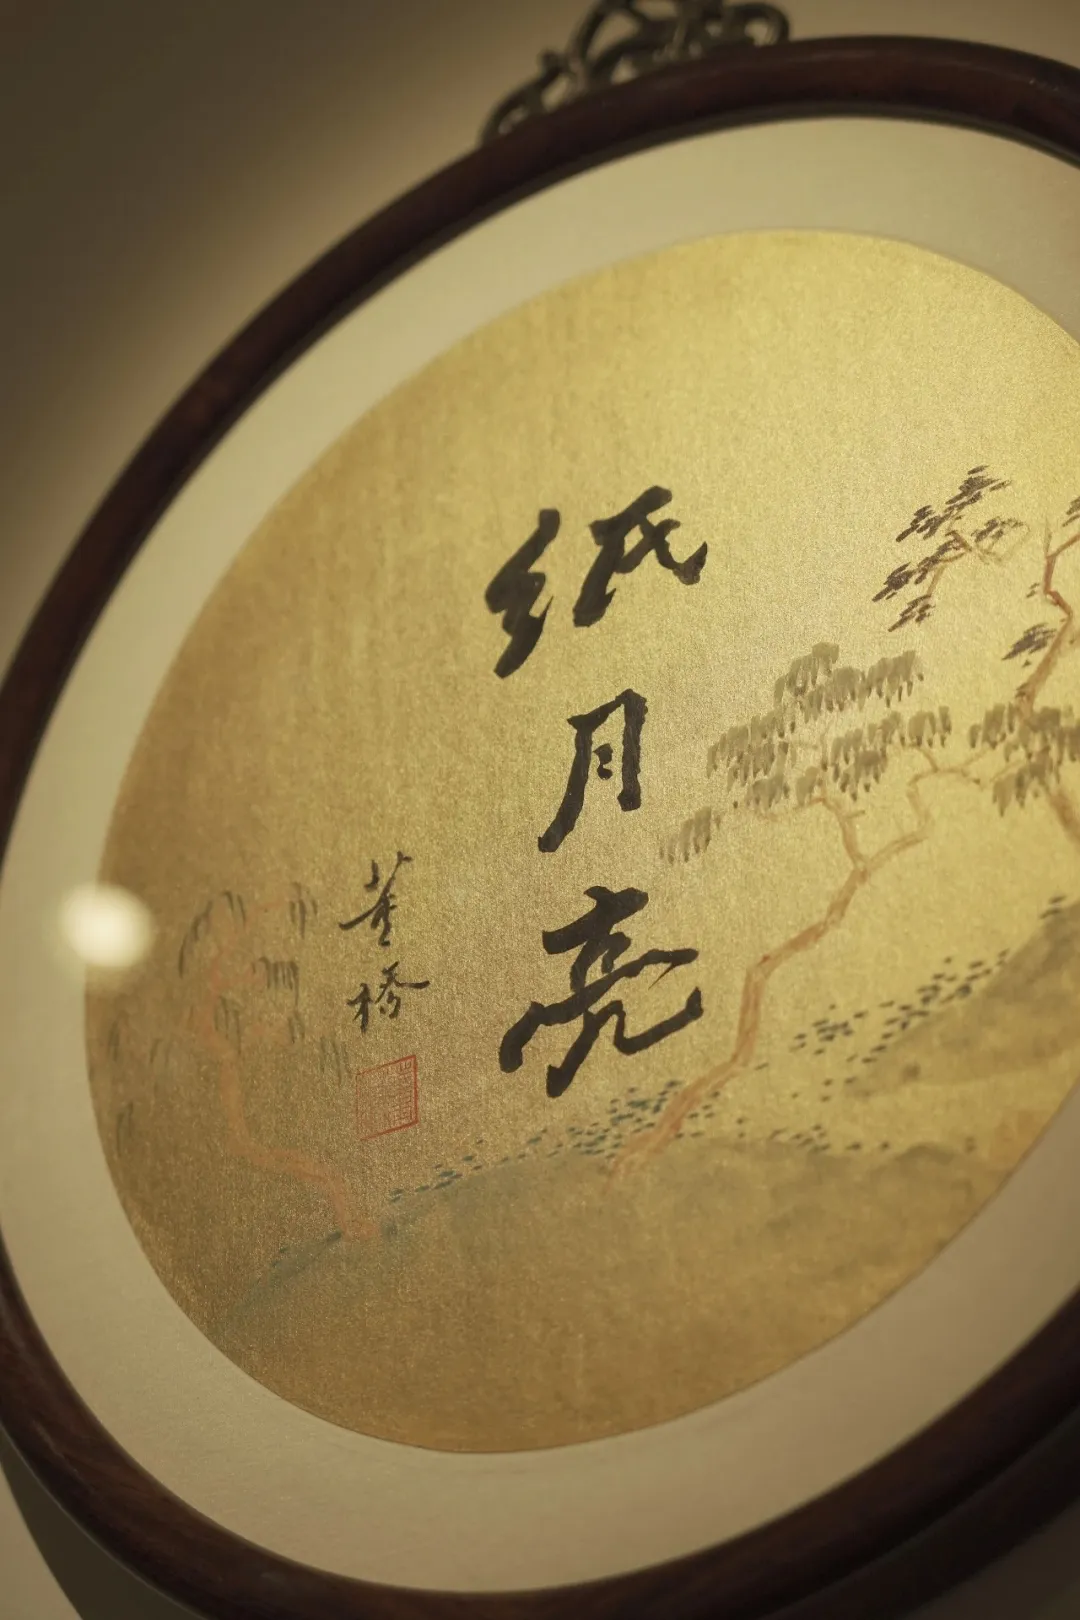 纸月亮
董桥